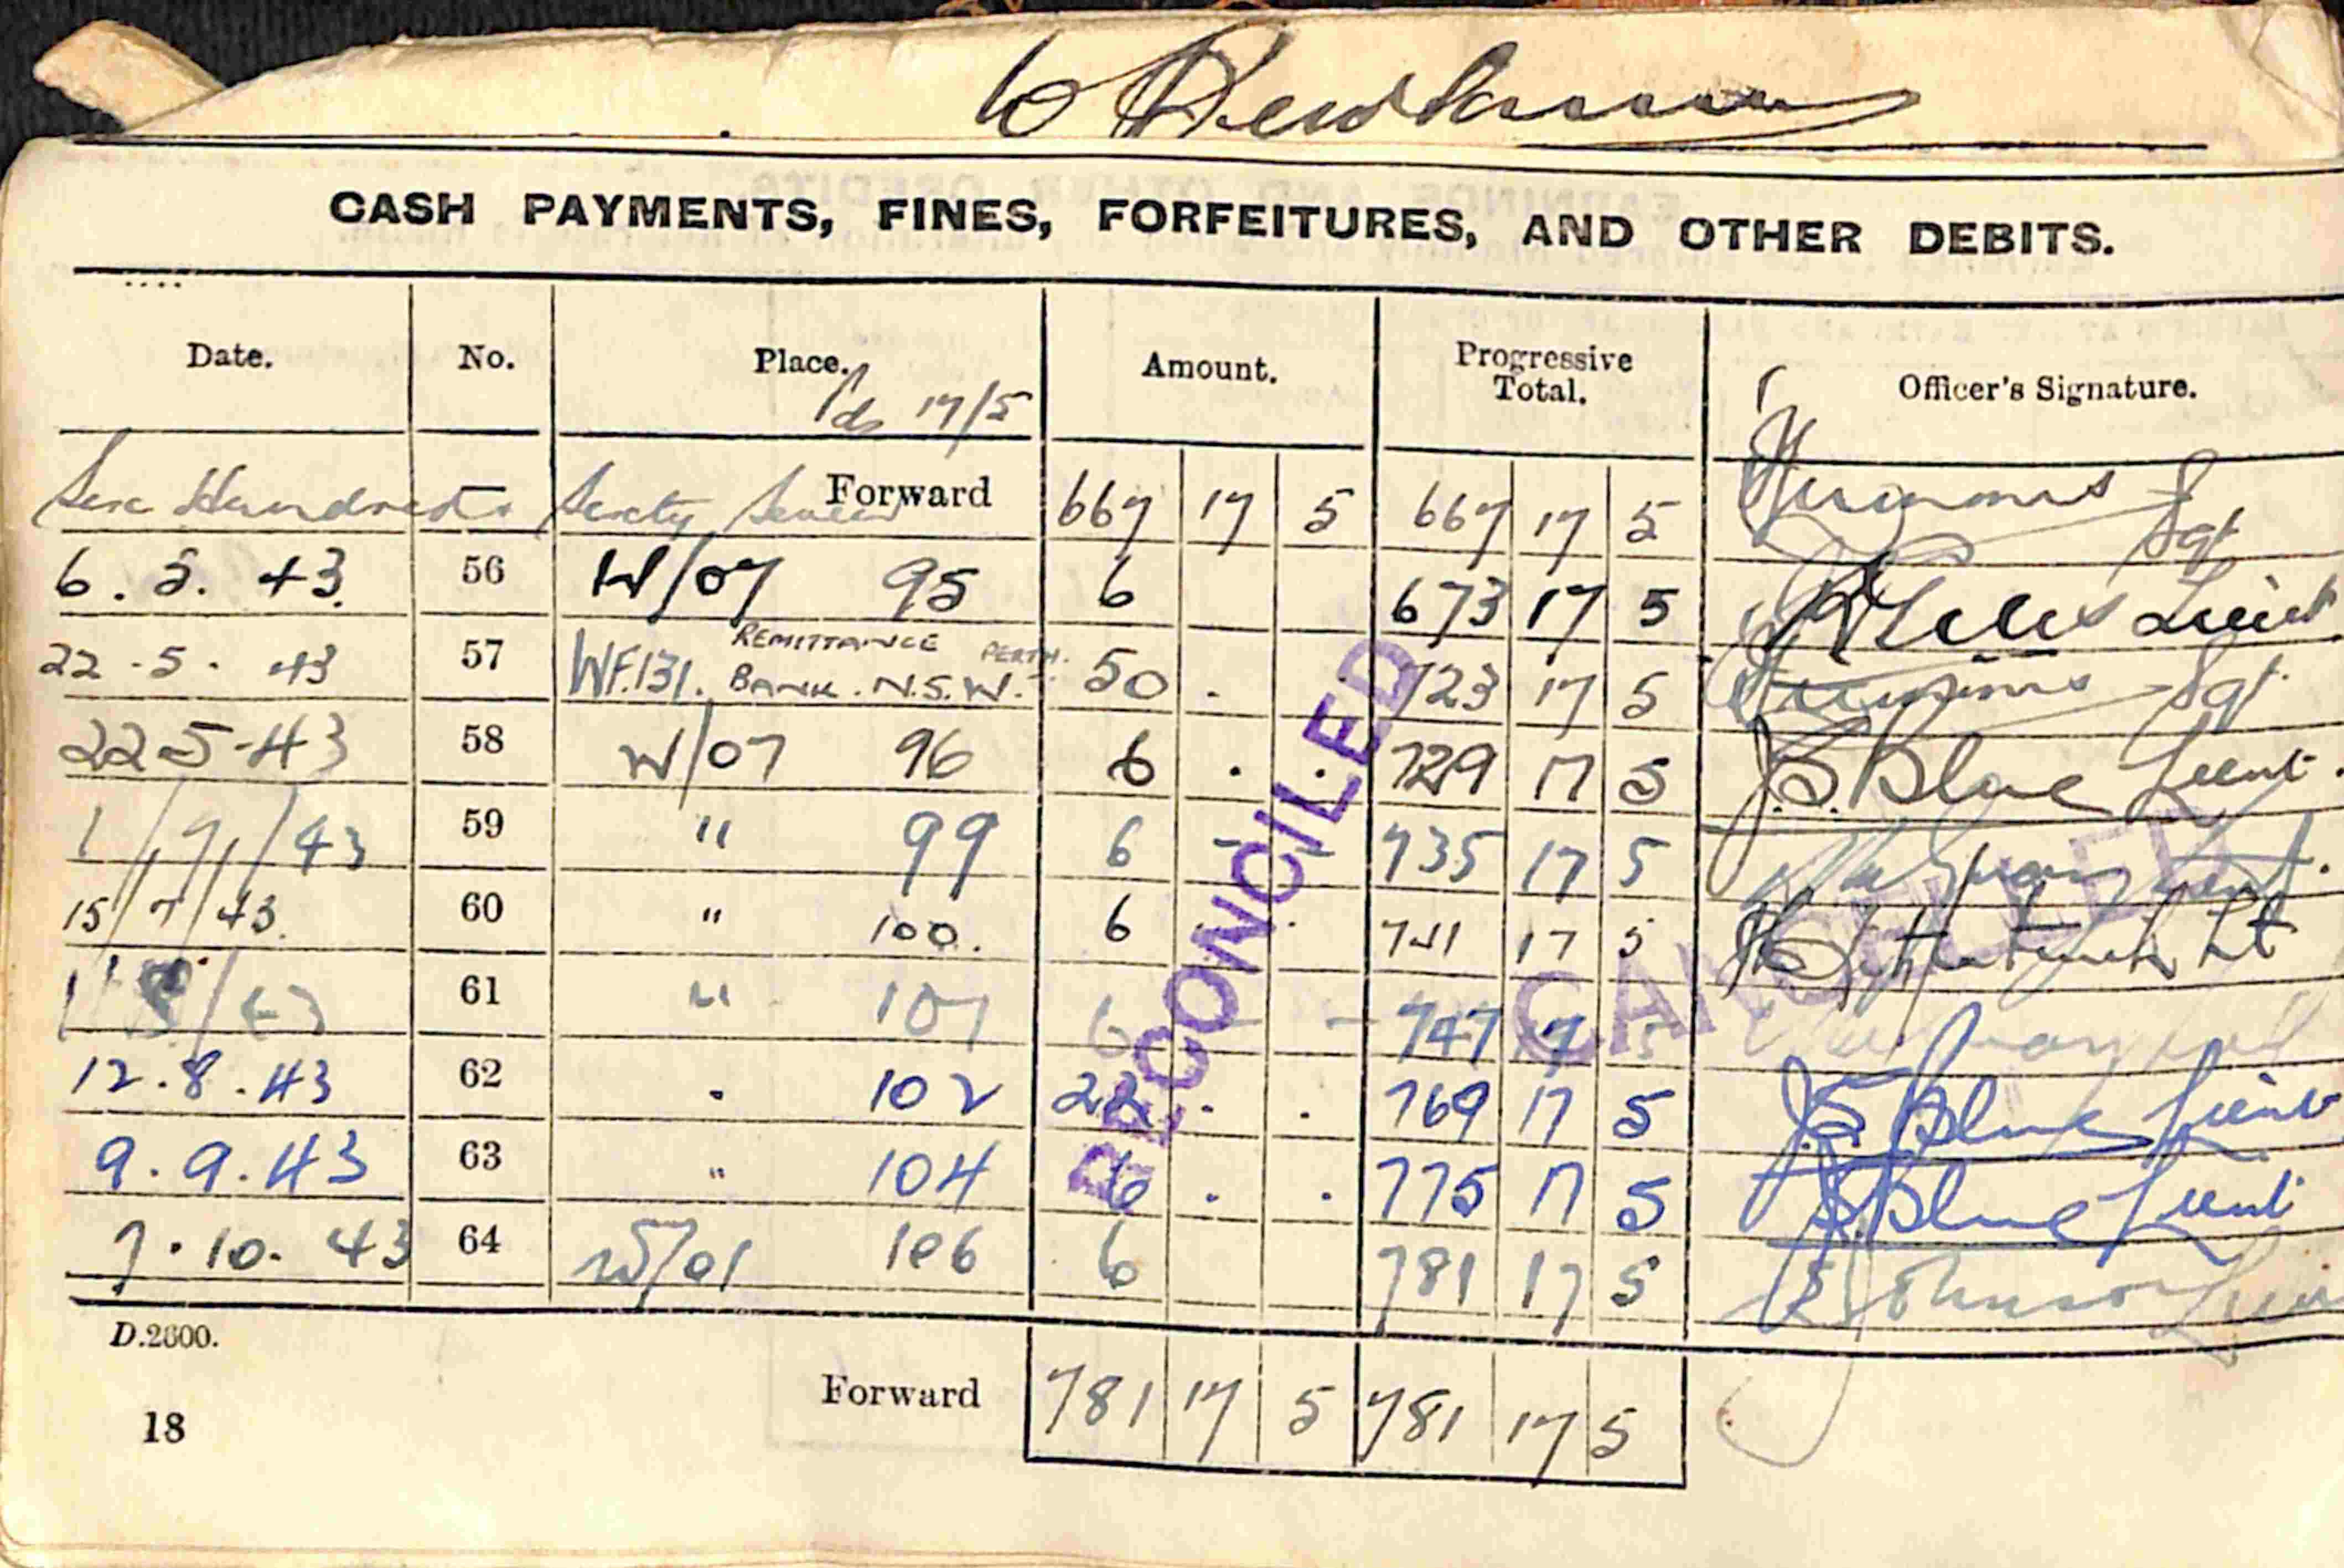 CASH PAYMENTS, FINES, FORFEITURES, AND OTHER DEBITS.
Date. No. Place. Amount. Progressive Total. Officer's Signature.
17/5
Six Hundred Sixty Seven Forward 667 17 5 667 17 5 Sgt
6. 5. 43. 56 W/07 95 6 673 17 5 Lieut
22 . 5 . 43 57 WF.131. REMITTANCE PERTH. BANK. N.S.W. 50 . . 723 17 5 Sgt.
22 5-43 58 W/07 96 6 . . 729 17 5 J.S. Blue Lieut.
1/7/43 59 " 99 6 - - 735 17 5
15/7/43. 60 " 100. 6 . . 741 17 5 Lt
61 " 101 6 - - 747 17 5
12.8.43 62 . 102 22 . . 769 17 5 J.S. Blue Lieut
9.9.43 63 " 104 6 . . 775 17 5 J.S. Blue Lieut
7.10. 43 64 W/01 106 6 781 17 5 Johnson Lieut
RECONCILED
CANCELLED
D.2600.
Forward 781 17 5 781 17 5
18